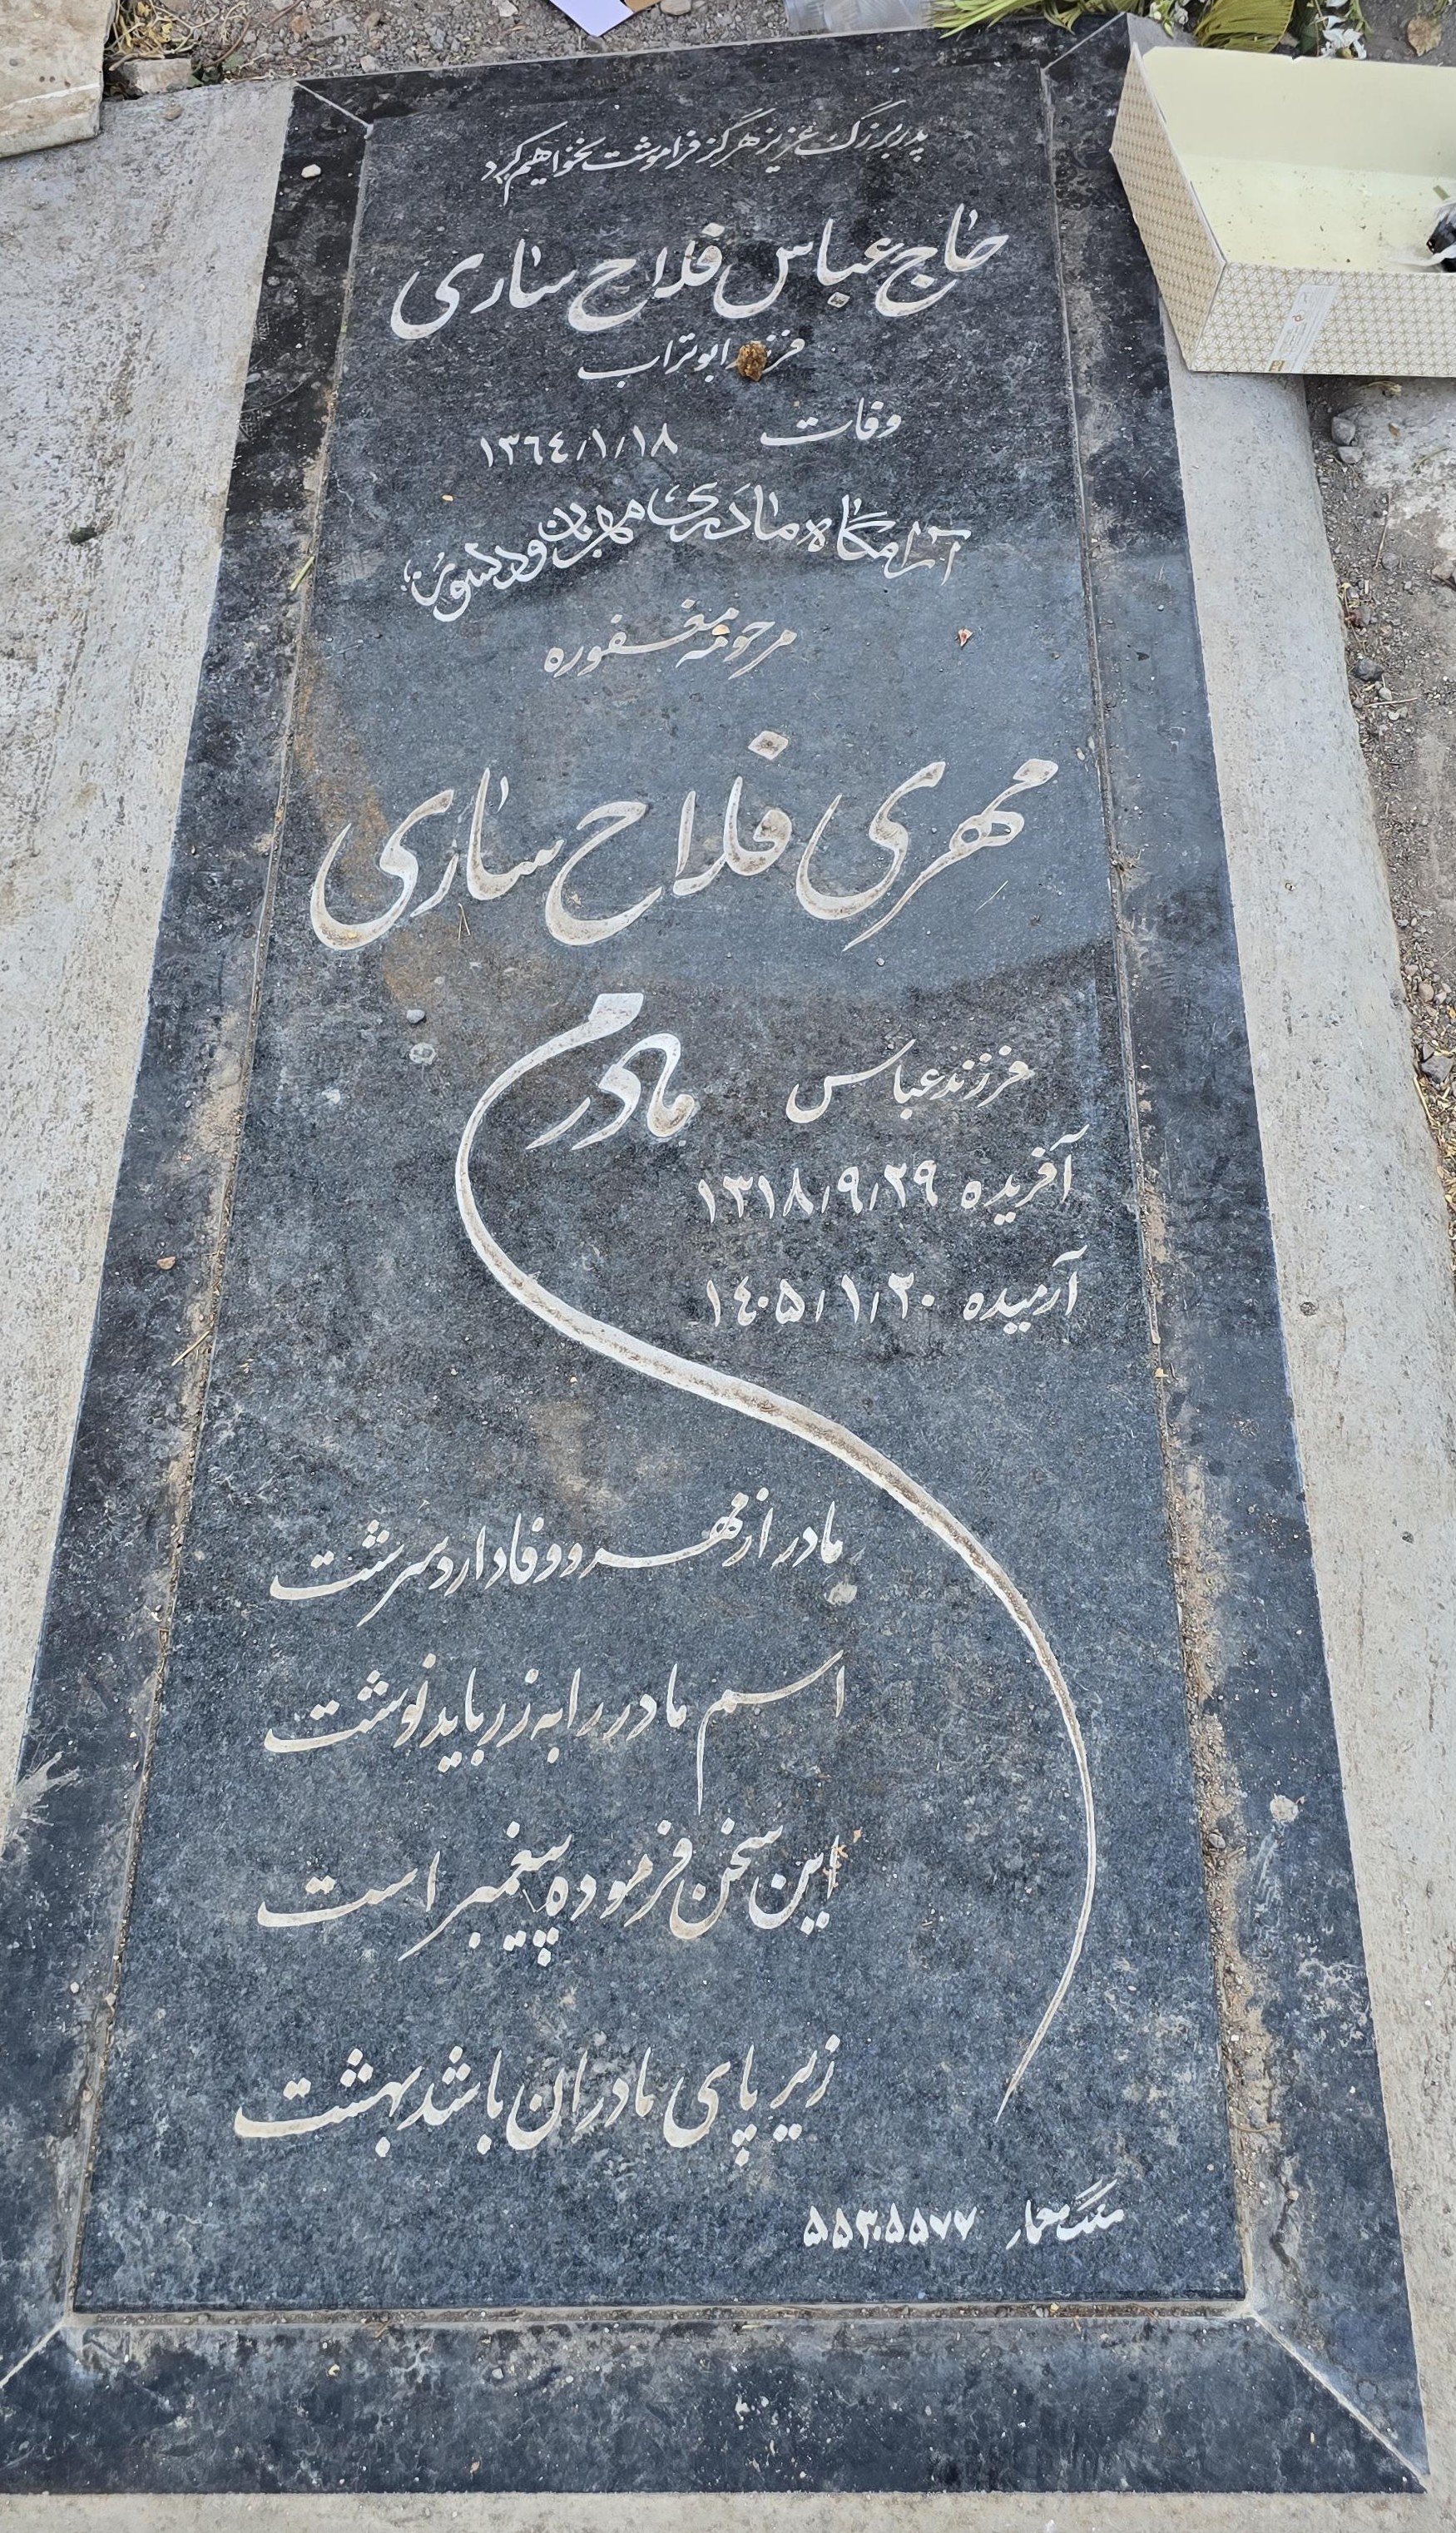 پدربزرگ عزیز هرگز فراموشت نخواهیم کرد
حاج عباس فلاح ساری
فرزند ابوتراب
وفات ۱۳٦٤/۱/۱۸
آرامگاه مادری مهربان و دلسوز
مرحومه مغفوره
مهری فلاح ساری
مادرم
فرزند عباس
آفریده ۱۳۱۸/۹/۲۹
آرمیده ۱٤۰۵/۱/۲۰
مادر از مهر و وفا دارد سرشت
اسم مادر را به زر باید نوشت
این سخن فرموده پیغمبر است
زیر پای مادران باشد بهشت
سنگ معمار ۵۵۳۰۵۵۷۷